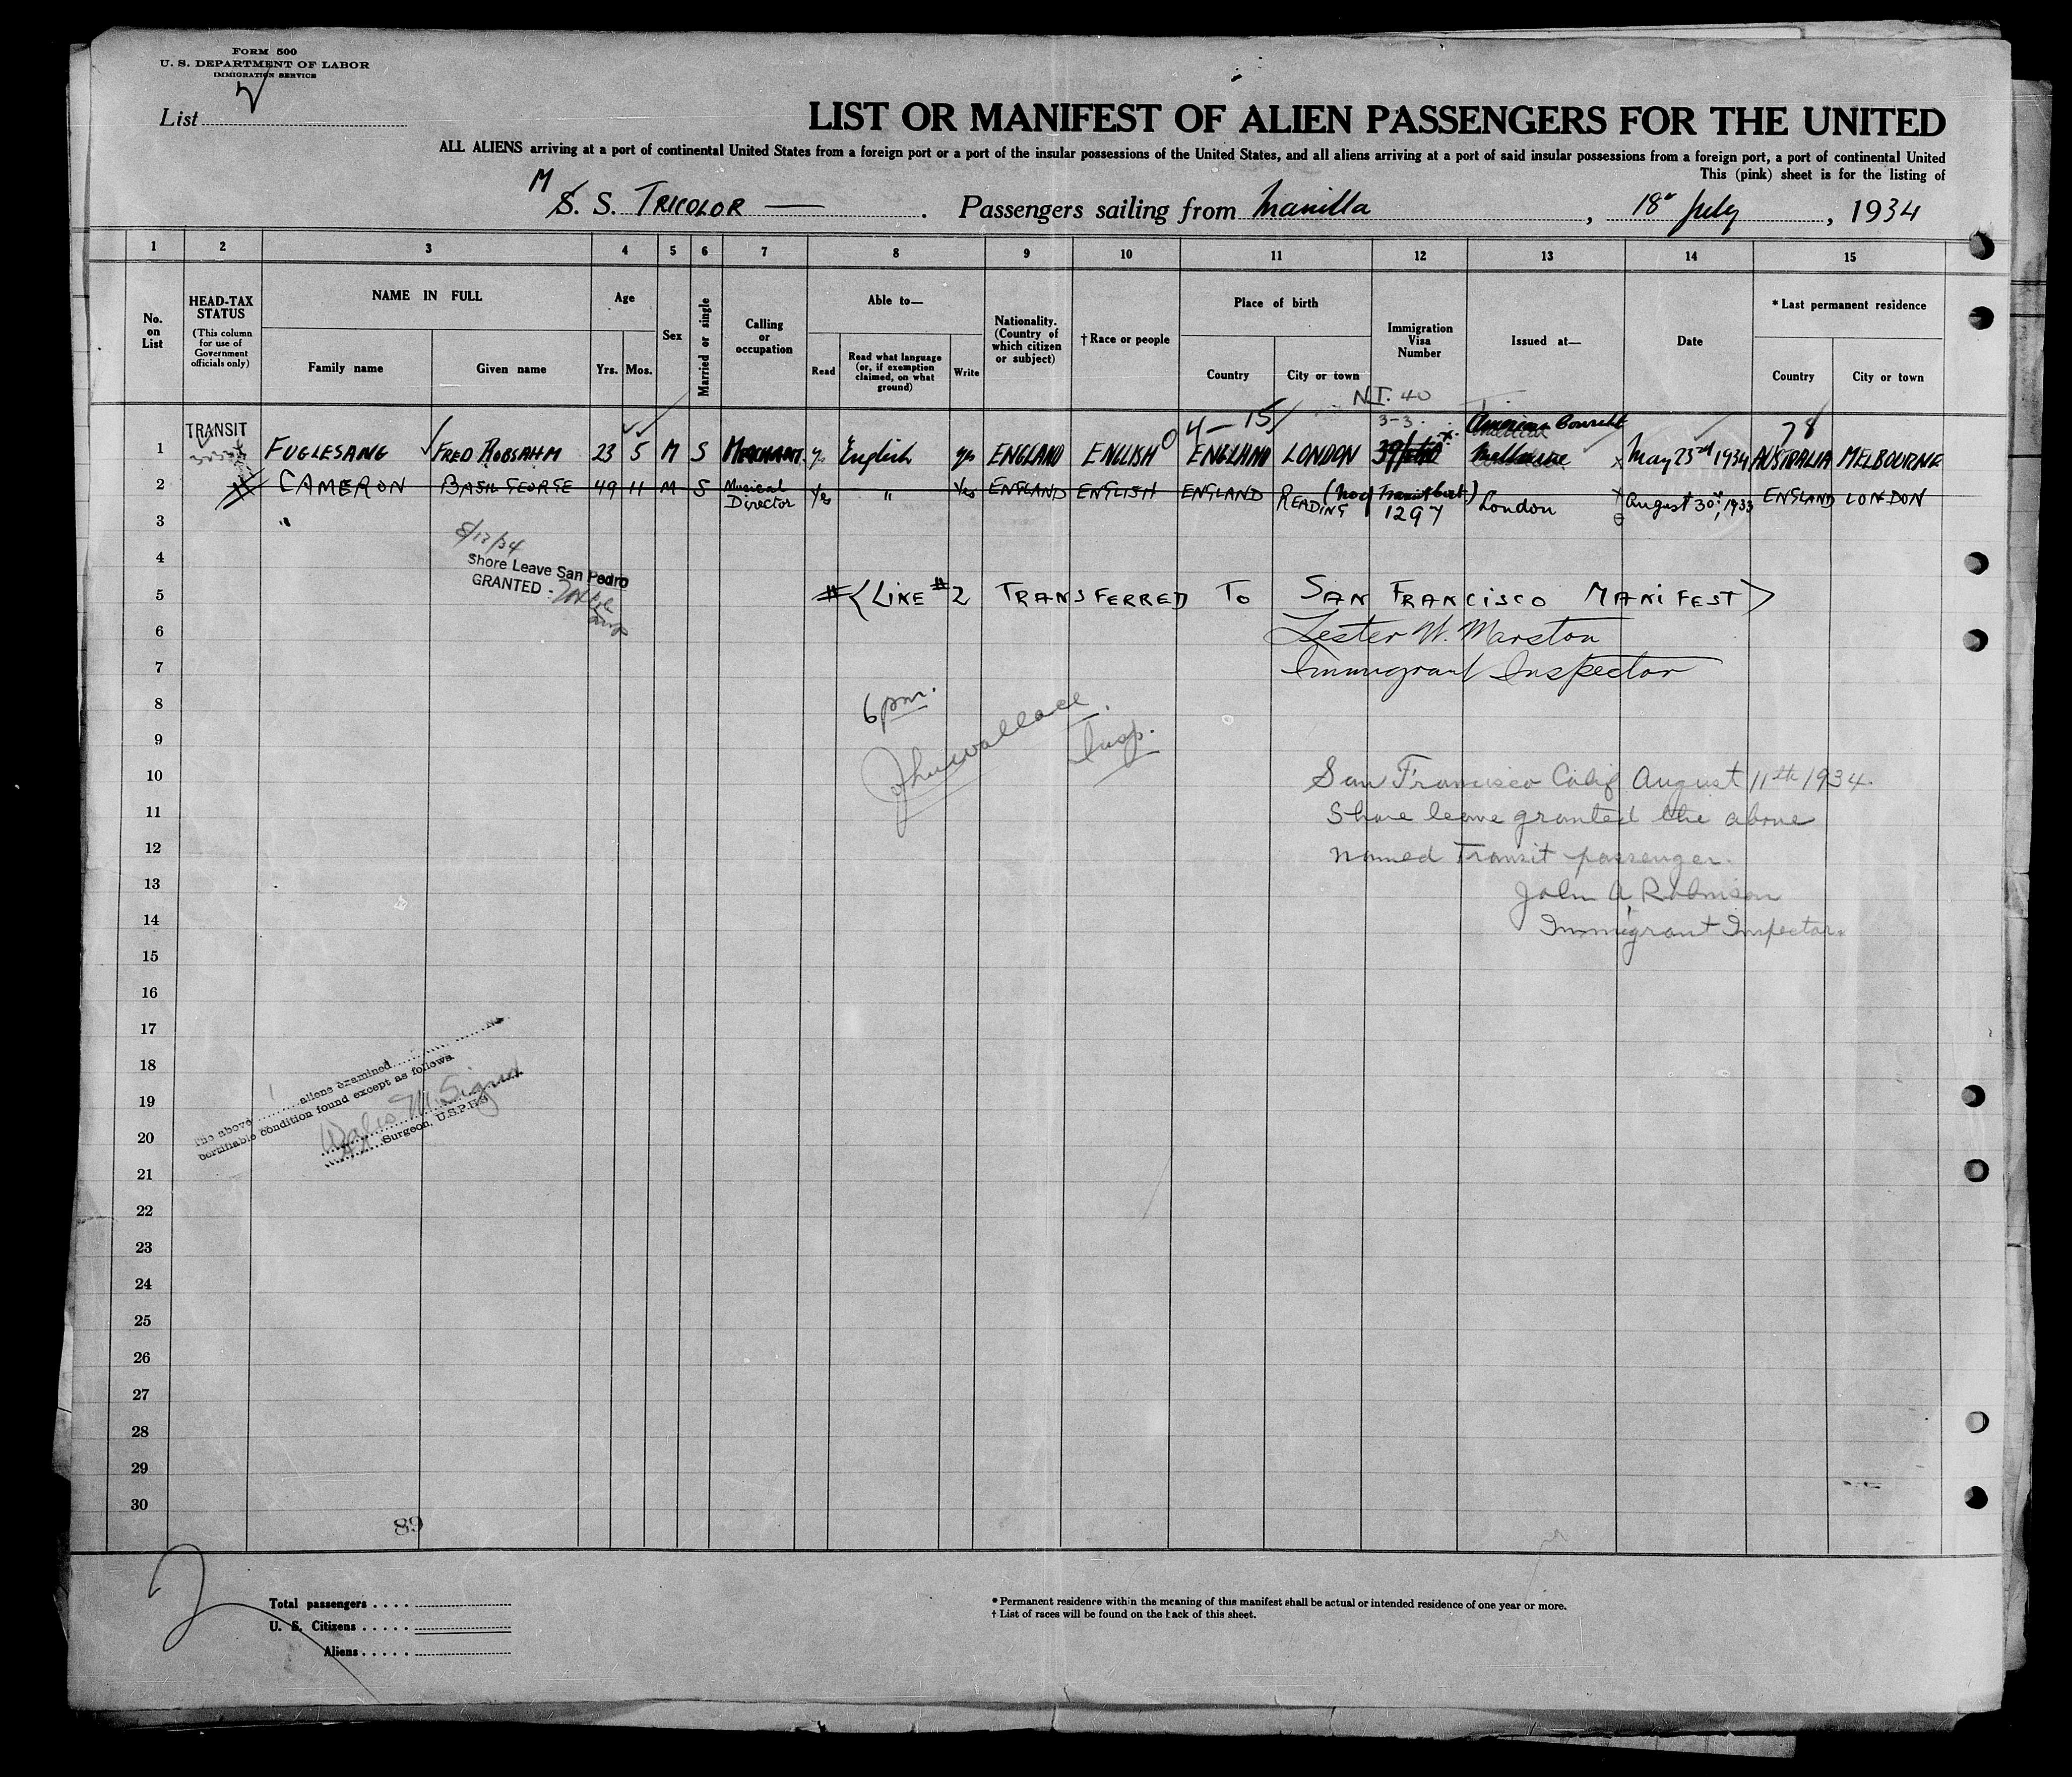 FORM 500
U. S. DEPARTMENT OF LABOR
IMMIGRATION SERVICE
List
LIST OR MANIFEST OF ALIEN PASSENGERS FOR THE UNITED
ALL ALIENS arriving at a port of continental United States from a foreign port or a port of the insular possessions of the United States, and all aliens arriving at a port of said insular possessions from a foreign port, a port of continental United
This (pink) sheet is for the listing of
M
S. S. TRICOLOR — . Passengers sailing from Manilla , 18th July , 1934
1 2 3 4 5 6 7 8 9 10 11 12 13 14 15
No. on List
HEAD-TAX STATUS
(This column for use of Government officials only)
NAME IN FULL
Family name Given name
Age
Yrs. Mos.
Sex
Married or single
Calling or occupation
Able to—
Read
Read what language (or, if exemption claimed, on what ground)
Write
Nationality. (Country of which citizen or subject)
† Race or people
Place of birth
Country City or town
Immigration Visa Number
Issued at—
Date
* Last permanent residence
Country City or town
N.I. 40
TRANSIT 4 — 15 3-3. American Consulate 78
1 FUGLESANG FRED ROBSAHM 23 5 M S MERCHANT. ys English ys ENGLAND ENGLISH ENGLAND LONDON Melbourne May 23rd 1934 AUSTRALIA MELBOURNE
2 # CAMERON BASIL GEORGE 49 11 M S Musical Director Yes " Yes ENGLAND ENGLISH ENGLAND READING 1297 London August 30th, 1933 ENGLAND LONDON
3 "
8/12/34
4
Shore Leave San Pedro
GRANTED -
5 # (LINE #2 TRANSFERRED TO SAN FRANCISCO MANIFEST)
6 Lester W. Marston
7 Immigrant Inspector
8 6 pm.
9 John Wallace. Insp.
10 San Francisco Calif August 11th 1934.
11 Shore leave granted the above
12 named Transit passenger.
13 John A Robinson
14 Immigrant Inspector.
15
16
17
18
19
20
21
22
23
24
25
26
27
28
29
30
The above 1 aliens examined
certifiable condition found except as follows
Surgeon, U.S.P.H.S
89
2
Total passengers . . . .
U. S. Citizens . . . . .
Aliens . . . . .
* Permanent residence within the meaning of this manifest shall be actual or intended residence of one year or more.
† List of races will be found on the back of this sheet.